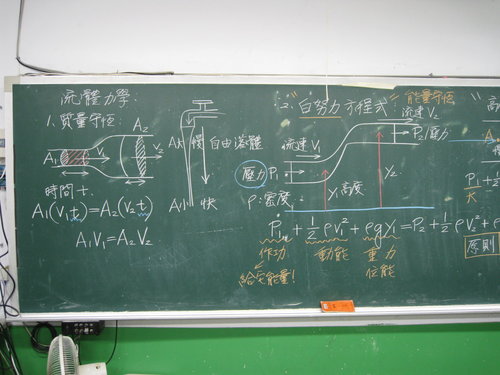 流體力學
1. 質量守恆
A₁
V₁
A₂
V₂
時間 t.
A₁(V₁t)=A₂(V₂t)
A₁V₁=A₂V₂
A大 慢
自由落體
A小 快
2. 白努力方程式
能量守恆
流速 V₂
P₂壓力
流速 V₁
壓力 P₁
y₁高度
y₂
ρ:密度
P₁ + ½ρV₁² + ρgy₁ = P₂ + ½ρV₂² + ρ
作功
動能
重力
位能
給它能量!
高
P₁ + ½
大
原則